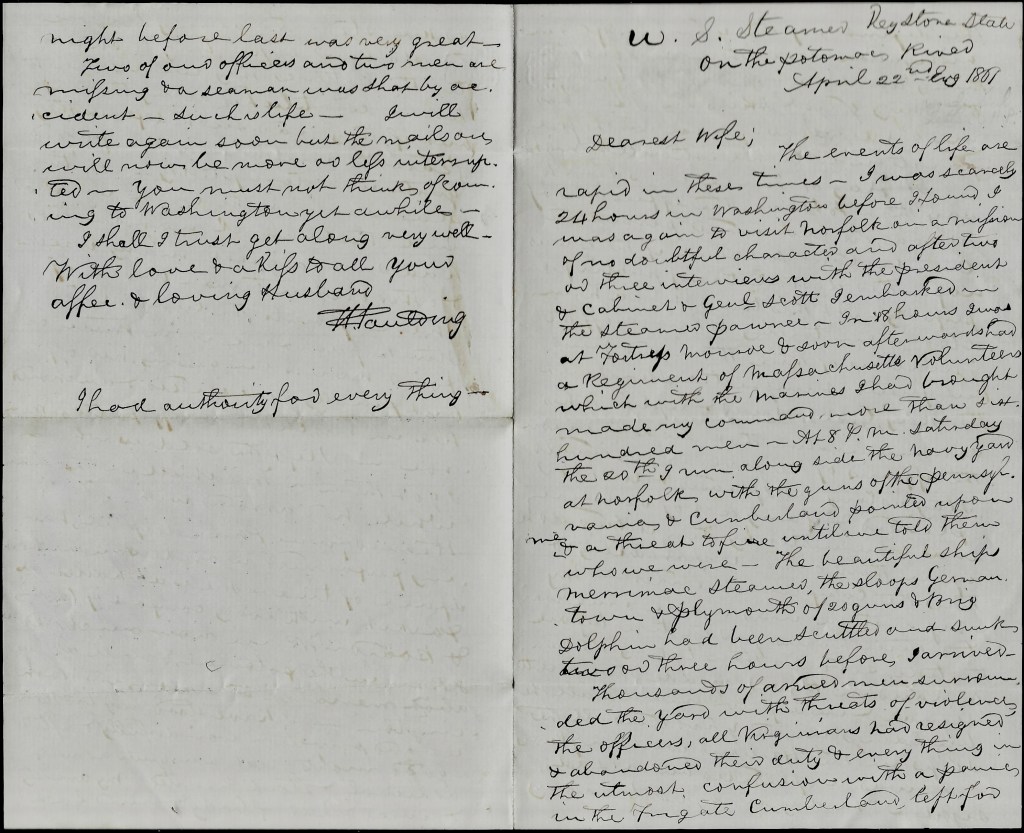 U. S. Steamer Keystone State
On the Potomac River
April 22nd Evg 1861
Dearest Wife;
The events of life are
rapid in these times — I was scarcely
24 hours in Washington before I found I
was again to visit Norfolk on a mission
of no doubtful character and after two
or three interviews with the president
& Cabinet & Genl Scott I embarked in
the steamer Pawnee — In 18 hours I was
at Fortress Monroe & soon afterwards had
a Regiment of Massachusetts Volunteers
which with the marines I had brought
made my command more than six
hundred men — At 8 P.M. Saturday
the 20th I run along side the Navy Yard
at Norfolk with the guns of the Pennsyl-
vania & Cumberland pointed upon
me & a threat to fire until we told them
who we were — The beautiful ships
Merrimac Steamer, the sloops German-
town & Plymouth of 20 guns & Brig
Dolphin had been scuttled and sunk
two or three hours before I arrived —
Thousands of armed men surroun-
ded the yard with threats of violence,
the officers, all Virginians had resigned
& abandoned their duty & every thing in
the utmost confusion with a panic
in the Frigate Cumberland, left for
night before last was very great —
Two of our officers and two men are
missing & a seaman was shot by ac-
cident — Such is life — I will
write again soon but the mails
will now be more or less interrup-
ted — You must not think of com-
ing to Washington yet awhile —
I shall I trust get along very well —
With love & a Kiss to all your
affec. & loving Husband
H Paulding
I had authority for every thing —